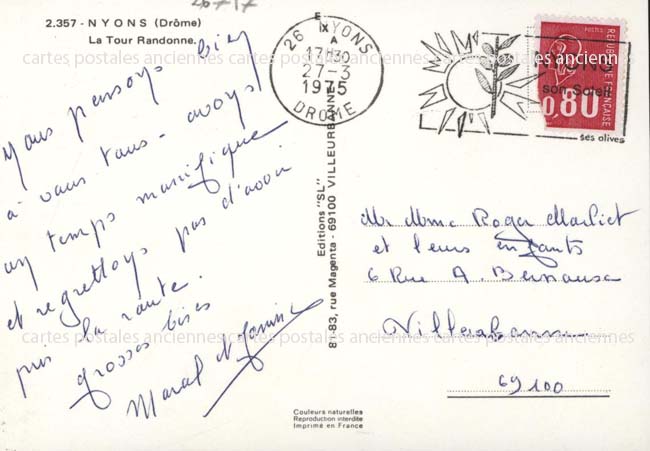 2.357 - NYONS (Drôme)
La Tour Randonne.
26 NYONS
IX A
17H30
27-3
1975
DROME
NYONS
son Soleil
ses olives
REPUBLIQUE FRANCAISE
0,80
cartes postales anciennes cartes postales anciennes cartes postales anciennes
Nous pensons bien
à vous tous - avons
un temps manifique
et regrettons pas d'avoir
pris la route.
grosses bises
Marcel et Janine
Editions "SL"
81-83, rue Magenta - 69100 VILLEURBANNE
Mr Mme Roger
et leurs enfants
6 Rue A. Bernause
Villeurbanne
69100
cartes postales anciennes cartes postales anciennes cartes postales anciennes
Couleurs naturelles
Reproduction interdite
Imprimé en France